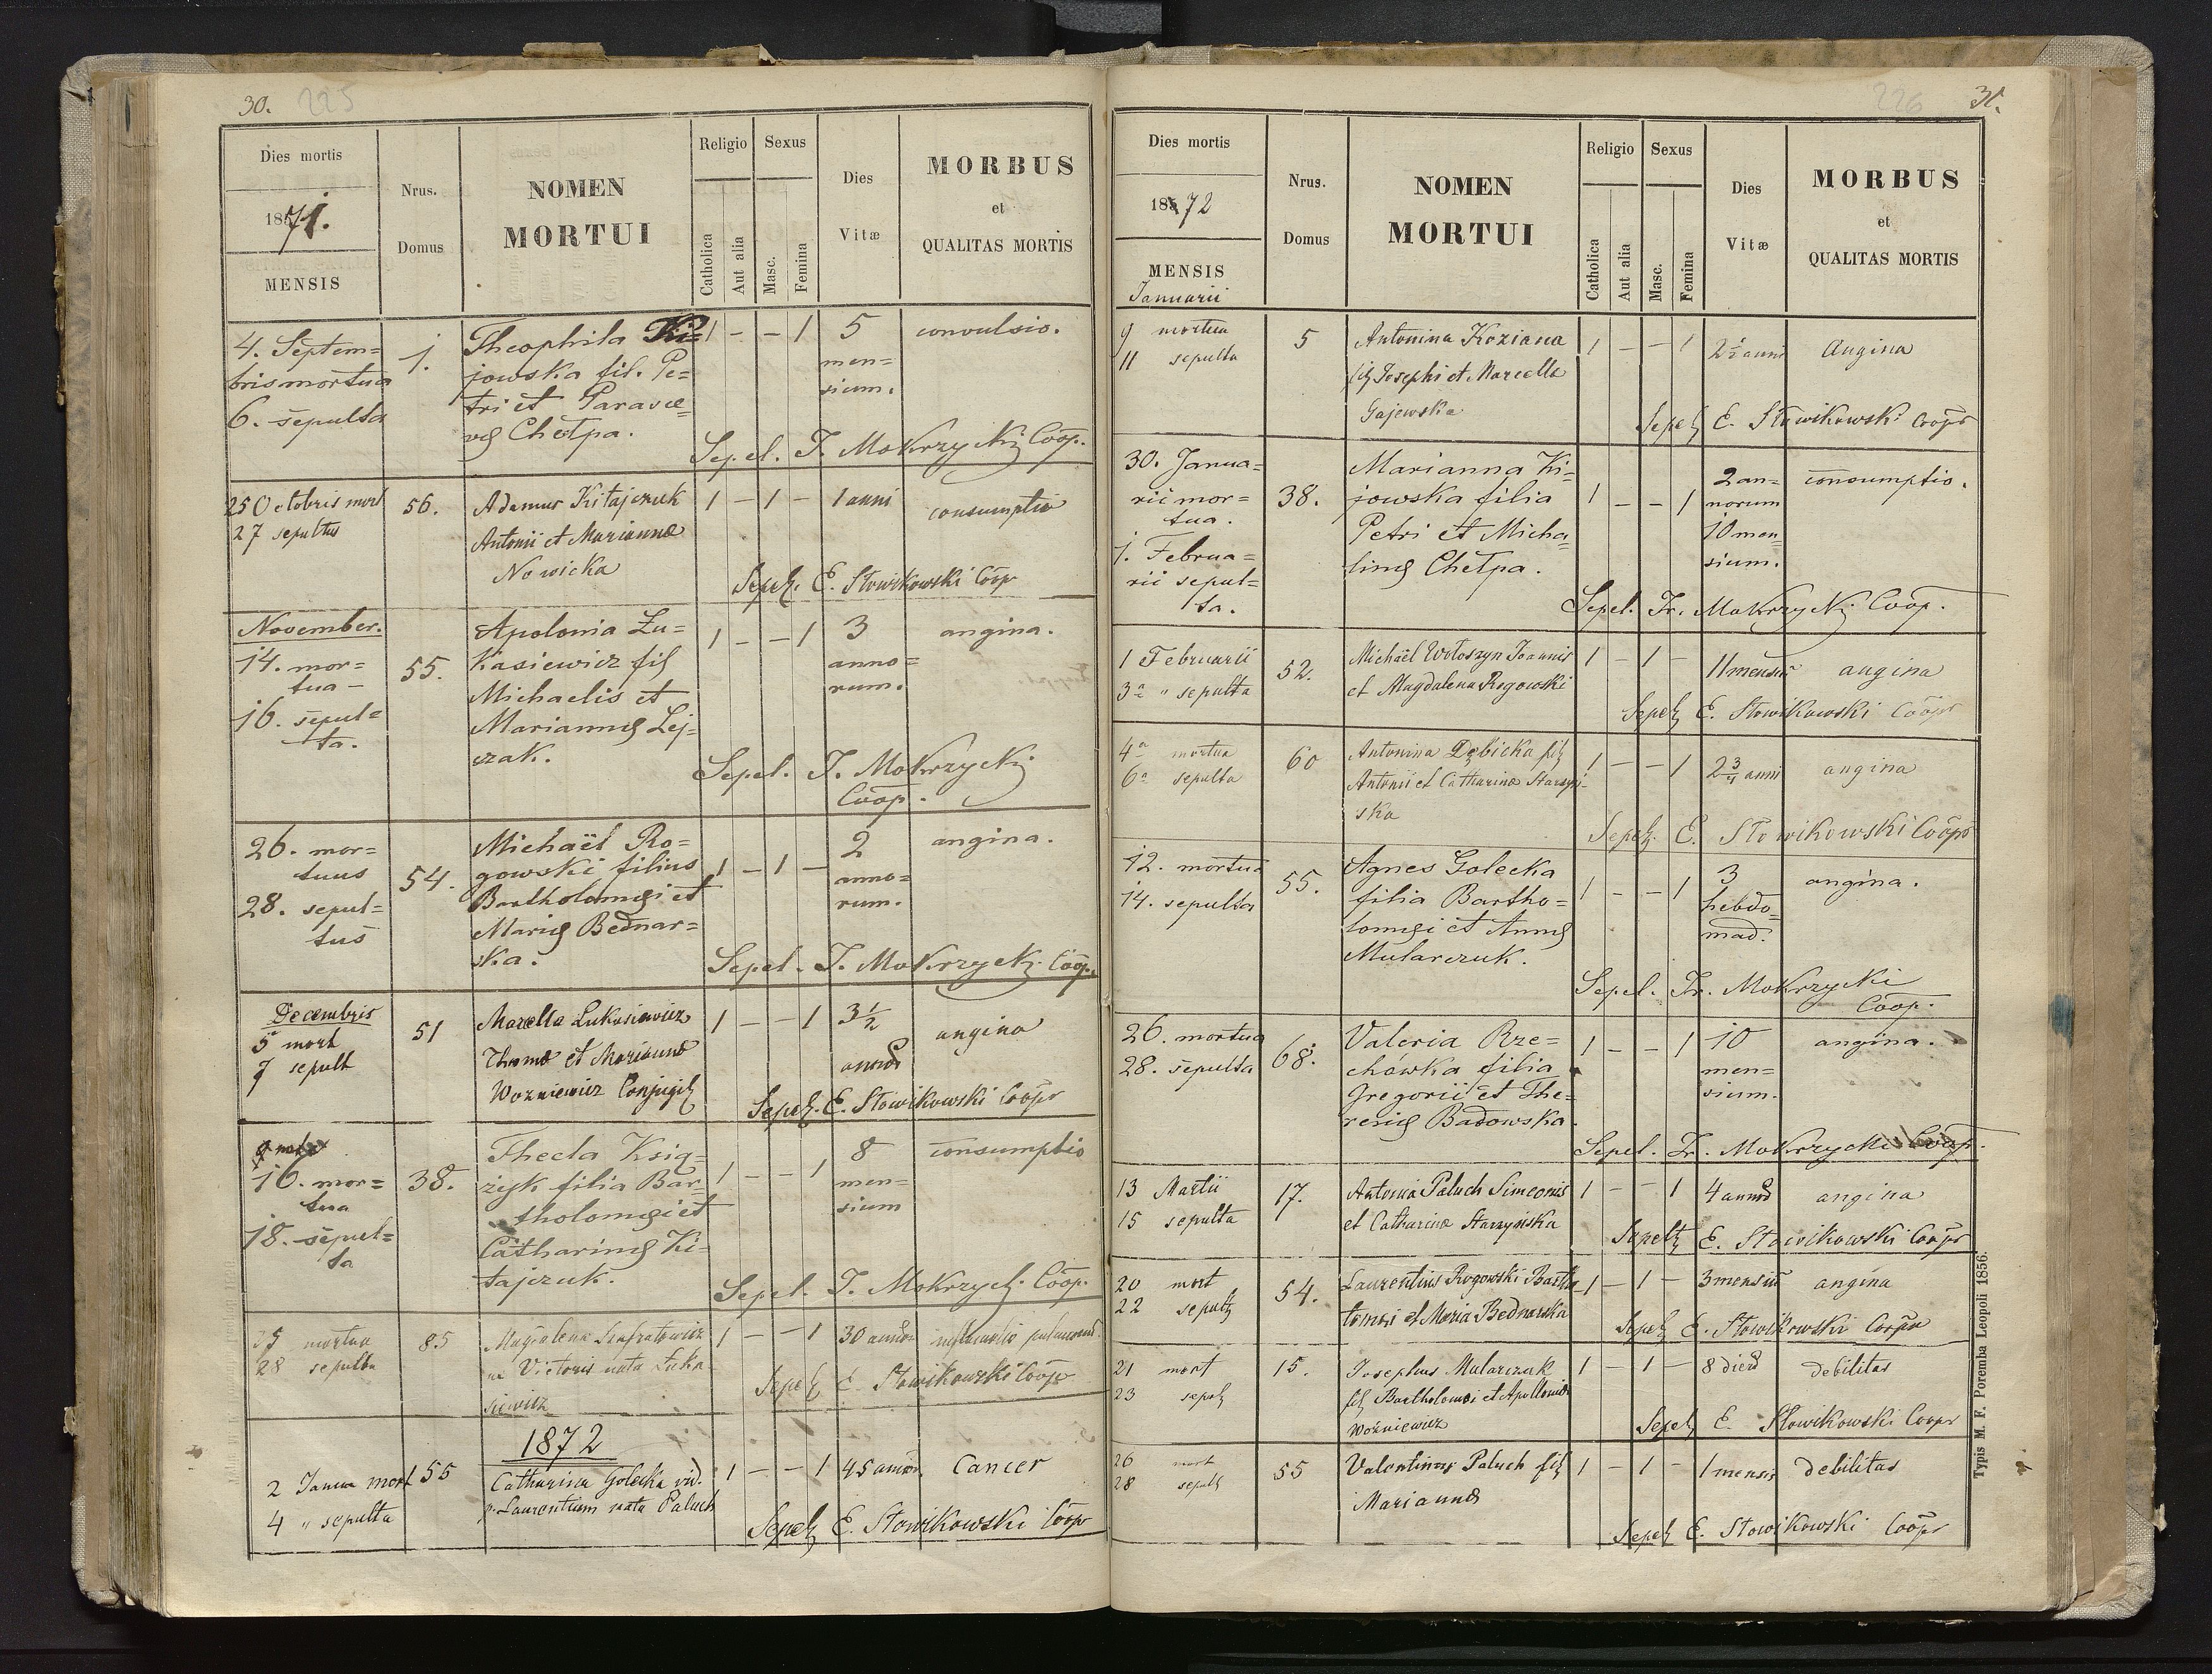 30. 225
Dies mortis
1871.
MENSIS
Nrus.
Domus
NOMEN
MORTUI
Religio
Catholica
Aut alia
Sexus
Masc.
Femina
Dies
Vitæ
MORBUS
et
QUALITAS MORTIS
4. Septem=
bris mortua
6. sepulta
1.
Theophila Ki=
jowska fil. Pe=
tri et
Chełpa.
1 - - 1
5
men=
sium.
convulsio.
Sepel. T. Mokrzycki Coop.
25 Octobris mort
27 sepultus
56.
Adamus Kitajczuk
Antonii et Mariannæ
Nowicka
1 - 1 -
1 anni
consumptio
Sepel. E. Słowikowski Coop
November.
14. mor=
tua -
16. sepul=
ta.
55.
Apolonia Łu=
kasiewicz fil
Michaelis et
Mariannæ Lej=
czak.
1 - - 1
3
anno=
rum.
angina.
Sepel. T. Mokrzycki
Coop.
26. mor=
tuus
28. sepul=
tus
54.
Michaël Ro=
gowski filius
Bartholomæi et
Mariæ Bednar=
ska.
1 - 1 -
2
anno=
rum.
angina.
Sepel. T. Mokrzycki Coop.
Decembris
5 mort
7 sepult
51
Marella Łukasiewicz
Thomæ et Mariannæ
Wozniewicz Conjugũ
1 - - 1
3 1/2
annor
angina
Sepel. E. Słowikowski Coopr
16. mor=
tua
18. sepul=
ta
38.
TheclaKsią=
zyk filia Bar=
tholomæi et
Catharinæ Ki=
tajczuk.
1 - - 1
8
men=
sium
consumptio
Sepel. T. Mokrzycki Coop.
mortua
28 sepulta
85
Magdalena
Victoris nata Łuka
siewicz
1 - - 1
30 annor
Sepel E. Słowikowski Coopr
1872
2 Janua mort
4 " sepulta
55
Catharina Golecka vid.
p. Laurentium nata Paluch
1 - - 1
45 annor
Cancer
Sepel E. Słowikowski Coopr
226 31.
Dies mortis
1872
MENSIS
Januarii
Nrus.
Domus
NOMEN
MORTUI
Religio
Catholica
Aut alia
Sexus
Masc.
Femina
Dies
Vitæ
MORBUS
et
QUALITAS MORTIS
9 mortua
11 sepulta
5
Antonina Koziana
fil Josephi et Marcella
Gajewska
1 - - 1
2 1/2 anni
Angina
Sepel E. Słowikowski Coopr
30. Janua=
rii mor=
tua.
1. Februa=
rii sepul=
ta.
38.
Marianna Ki=
jowska filia
Petri et Micha=
linæ Chełpa.
1 - - 1
2 an=
norum
10 men=
sium.
consumptio.
Sepel. Fr. Mokrzycki Coop.
1 Februarii
3a " sepulta
52.
Michäel Wołoszyn Joannis
et Magdalena Rogowski
1 - 1 -
11 mensiũ
angina
Sepel E. Słowikowski Coopr
4a mortua
6a sepulta
60
Antonina Dębicka fil
Antonii et Catharinæ Starzyń-
ska
1 - - 1
2 3/4 anni
angina
Sepel. E. Słowikowski Coopr
12. mortua
14. sepulta
55.
Agnes Golecka
filia Bartho=
lomæi et Annæ
Mularczuk.
1 - - 1
3
hebdo=
mad.
angina.
Sepel. Fr. Mokrzycki
Coop.
26. mortua
28. sepulta
68.
Valeria Rze=
chówka filia
Gregorii et The=
resiæ Badowska.
1 - - 1
10
men=
sium.
angina.
Sepel. Fr. Mokrzycki Coop.
13 Martii
15 sepulta
17.
Antonia Paluch Simeonis
et Catharinæ Starzyńska
1 - - 1
4 annor
angina
Sepel E. Słowikowski Coopr
20 mort
22 sepult
54.
Laurentius Rogowski Bartho
lomæi et Maria Bednarska
1 - 1 -
3 mensiũ
angina
Sepel E. Słowikowski Coopr
21 mort
23 sepul
15.
Josephus Mularczuk
fil Bartholomæi et Apolloniæ
Woźniewicz
1 - 1 -
8 dierũ
debilitas
Sepel E. Słowikowski Coopr
26 mort
28 sepult
55
Valentinus Paluch fil
Mariannæ
1 - 1 -
1 mensis
debilitas
Sepel E. Słowikowski Coopr
Typis M. F. Poremba Leopoli 1856.